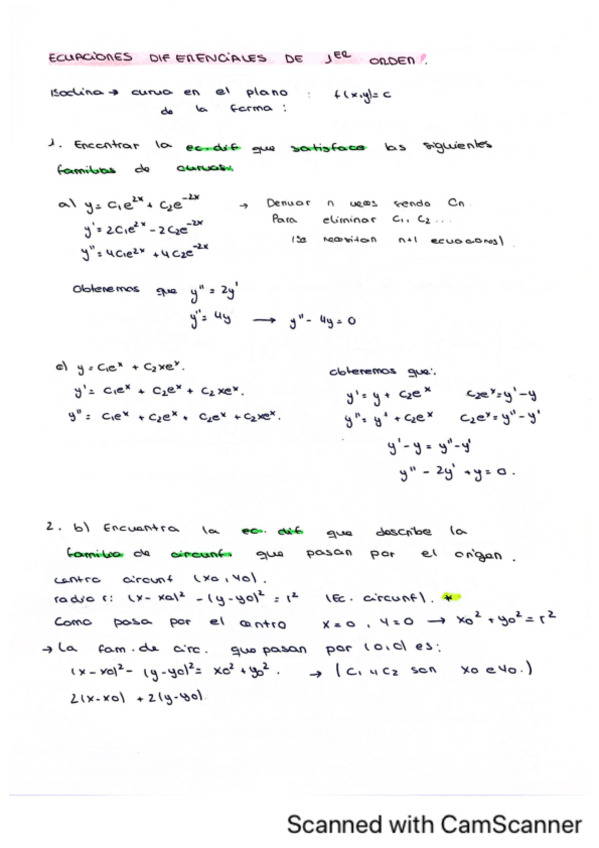 ECUACIONES DIFERENCIALES DE 1ER ORDEN!.
Isoclina → curva en el plano : f(x,y)=c
de la forma :
1. Encontrar la ec.dif que satisface las siguientes
familias de curvas:
a) y = C₁e²ˣ + C₂e⁻²ˣ → Derivar n veces siendo Cn.
y' = 2C₁e²ˣ - 2C₂e⁻²ˣ Para eliminar C₁, C₂ ...
y'' = 4C₁e²ˣ + 4C₂e⁻²ˣ (Se necesitan n+1 ecuaciones).
Obtenemos que y'' = 2y'
y'' = 4y → y'' - 4y = 0
c) y = C₁eˣ + C₂xeˣ. obtenemos que:
y' = C₁eˣ + C₂eˣ + C₂xeˣ. y' = y + C₂eˣ C₂eˣ = y' - y
y'' = C₁eˣ + C₂eˣ + C₂eˣ + C₂xeˣ. y'' = y' + C₂eˣ C₂eˣ = y'' - y'
y' - y = y'' - y'
y'' - 2y' + y = 0.
2. b) Encuentra la ec. dif que describe la
familia de circunf. que pasan por el origen.
centro circunf (x0, y0).
radio r: (x - x0)² - (y - y0)² = r² (Ec. circunf). *
Como pasa por el centro x=0, y=0 → x0² + y0² = r²
→ La fam. de circ. que pasan por (0,0) es:
(x - x0)² - (y - y0)² = x0² + y0². → (C₁ y C₂ son x0 e y0.)
2(x-x0) + 2(y-y0).
Scanned with CamScanner